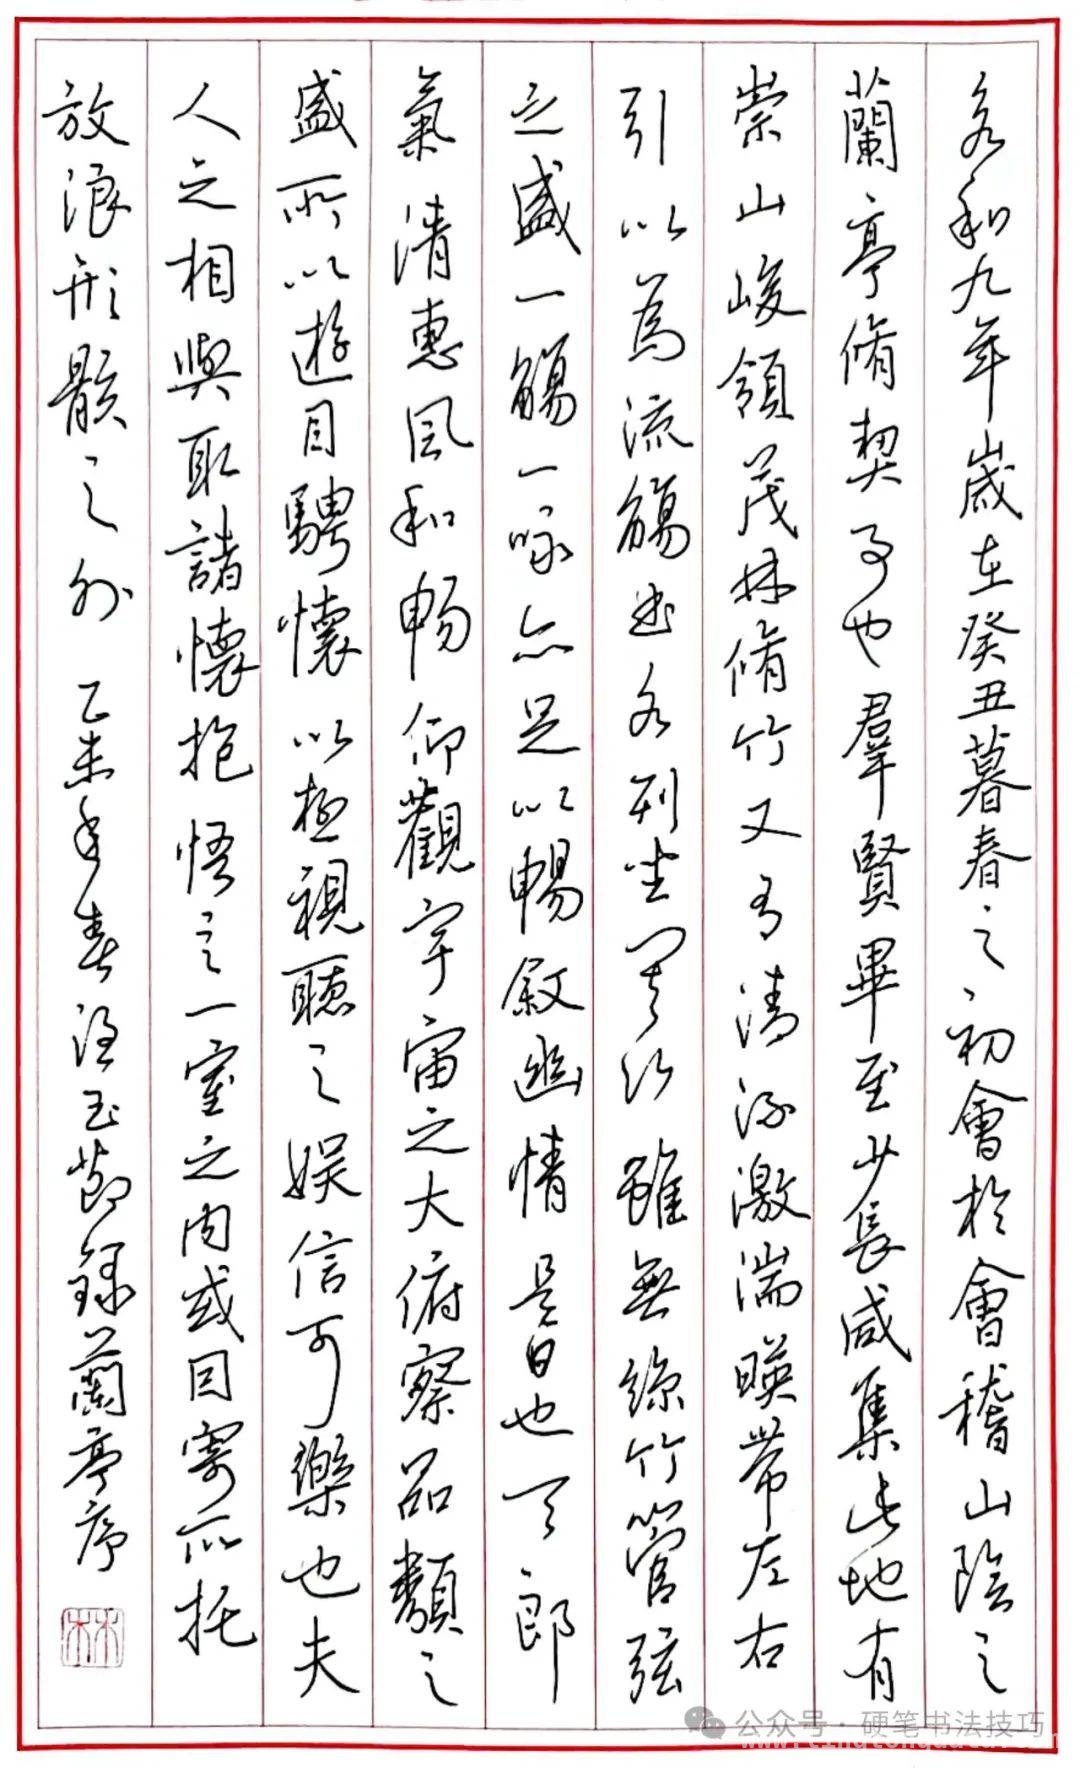 永和九年歲在癸丑暮春之初會於會稽山陰之
蘭亭脩禊事也羣賢畢至少長咸集此地有
崇山峻領茂林脩竹又有清流激湍暎帶左右
引以為流觴曲水列坐其次雖無絲竹管弦
之盛一觴一咏亦足以暢敘幽情是日也天朗
氣清惠風和畅仰觀宇宙之大俯察品類之
盛所以遊目騁懷以極視聽之娱信可樂也夫
人之相與取諸懷抱悟言一室之內或因寄所托
放浪形骸之外 乙未年春 玉節錄蘭亭序
林
公众号·硬笔书法技巧